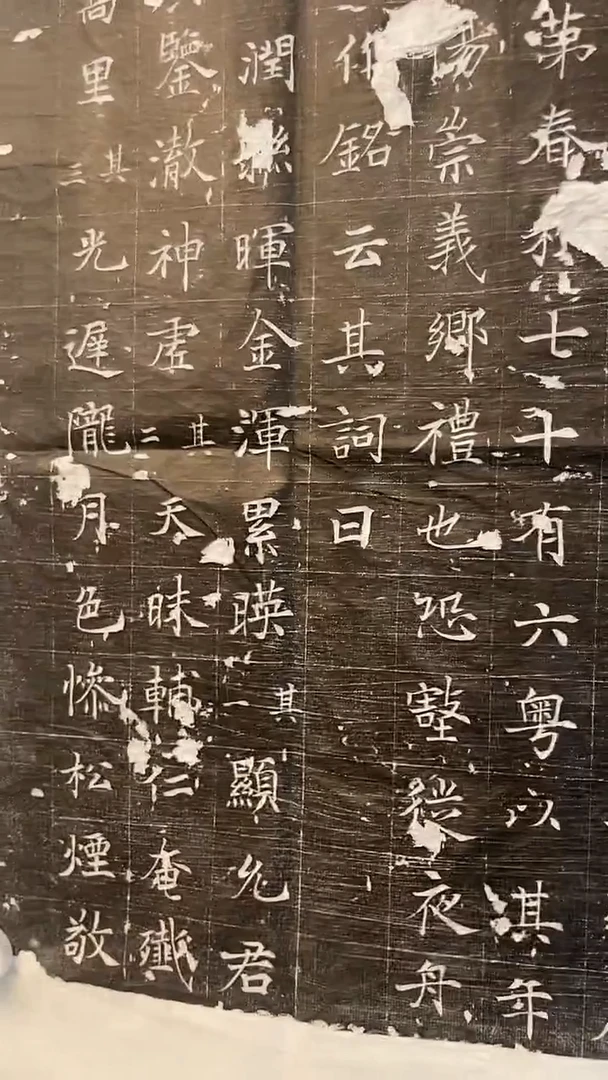 第春秋七十有六粤以其年
陽崇義鄉禮也恐壑從夜舟
作銘云其詞曰
潤聯暉金渾累暎其一顯允君
鑒澈神虛其二天昧輔仁奄殲
高里其三光遲隴月色慘松煙敬